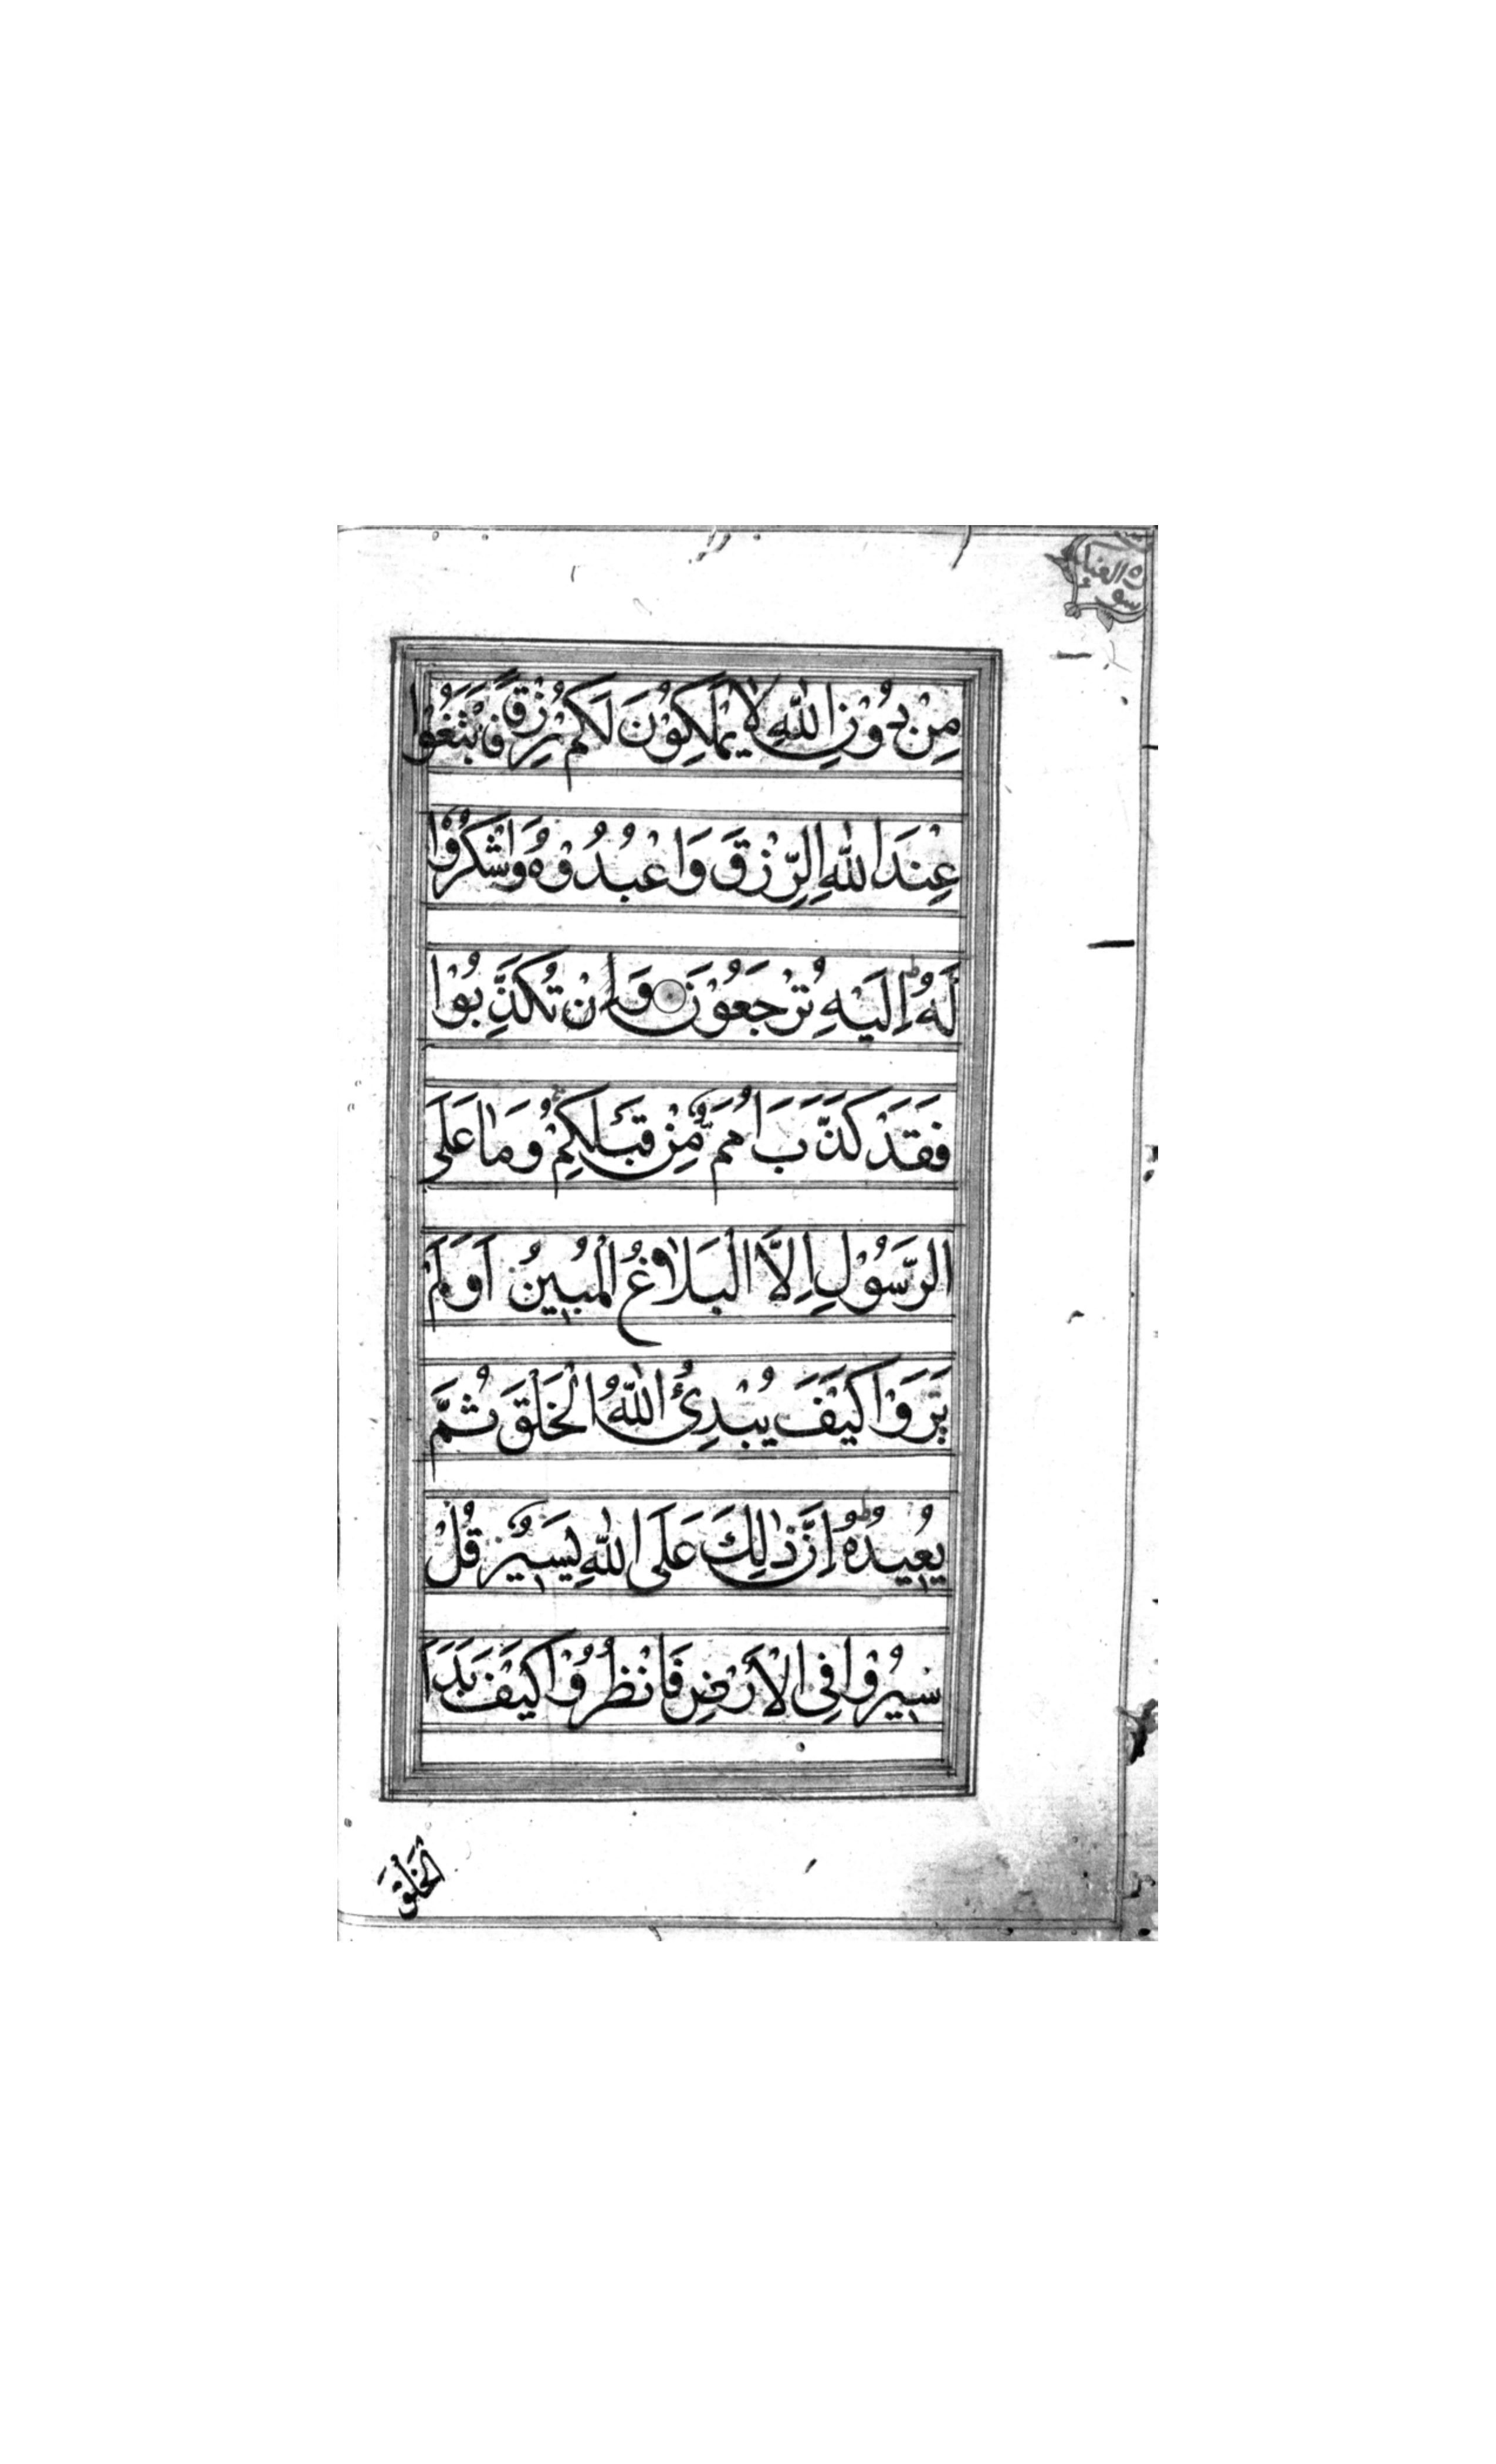 مِنْ دُوْنِ اللّٰهِ لَا يَمْلِكُوْنَ لَكُمْ رِزْقًا فَابْتَغُوْا
عِنْدَ اللّٰهِ الرِّزْقَ وَاعْبُدُوْهُ وَاشْكُرُوْا
لَهُ ط اِلَيْهِ تُرْجَعُوْنَ ۝ وَاِنْ تُكَذِّبُوْا
فَقَدْ كَذَّبَ اُمَمٌ مِّنْ قَبْلِكُمْ ط وَمَا عَلَى
الرَّسُوْلِ اِلَّا الْبَلٰغُ الْمُبِيْنُ اَوَلَمْ
يَرَوْا كَيْفَ يُبْدِئُ اللّٰهُ الْخَلْقَ ثُمَّ
يُعِيْدُهُ ط اِنَّ ذٰلِكَ عَلَى اللّٰهِ يَسِيْرٌ قُلْ
سِيْرُوْا فِى الْاَرْضِ فَانْظُرُوْا كَيْفَ بَدَاَ
الْخَلْقَ